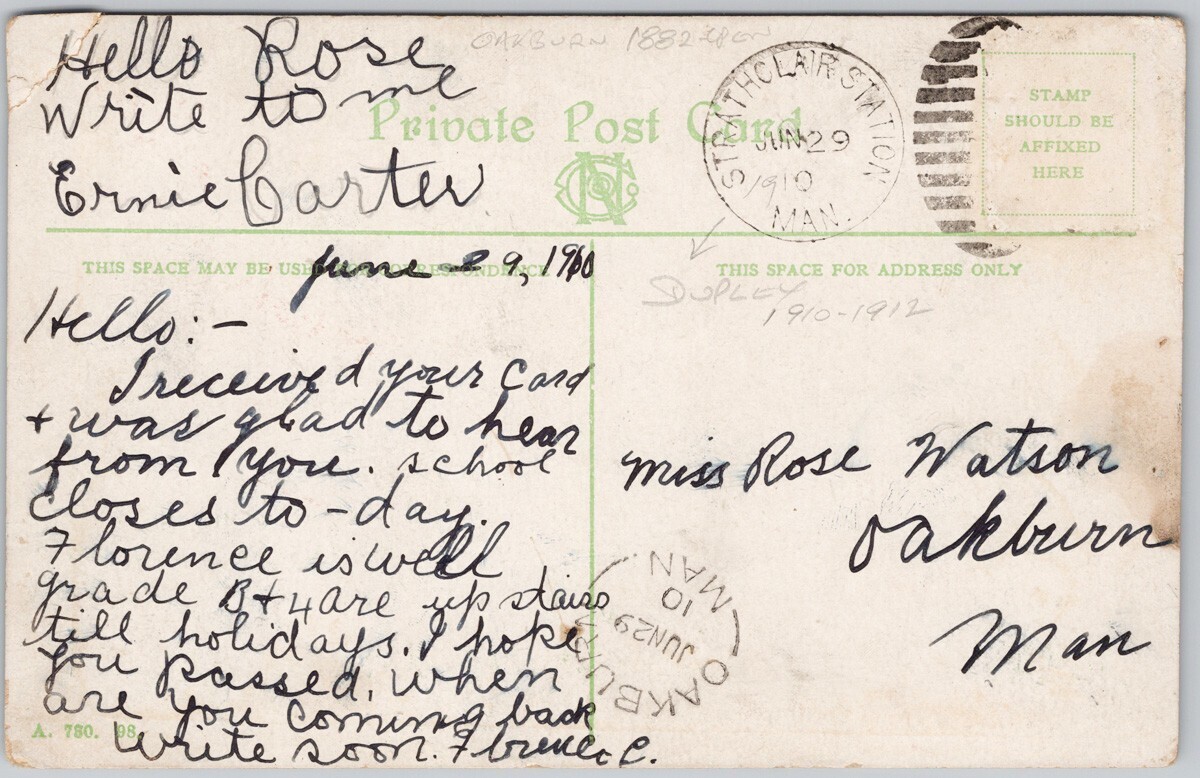 Hello Rose
Write to me
Ernie Carter
OAKBURN 1882
Private Post Card
NC
STRATHCLAIR STATION
JUN 29
1910
MAN.
STAMP
SHOULD BE
AFFIXED
HERE
THIS SPACE MAY BE USED FOR CORRESPONDENCE
THIS SPACE FOR ADDRESS ONLY
1910-1912
June 29, 1910
Hello:-
I received your card
+ was glad to hear
from you. school
closes to-day.
Florence is well
grade B + 4 are up stairs
till holidays. I hope
you passed. When
are you coming back
Write soon. Florence C.
A. 780. 98
Miss Rose Watson
Oakburn
Man
OAKBURN
JUN 29
10
MAN.